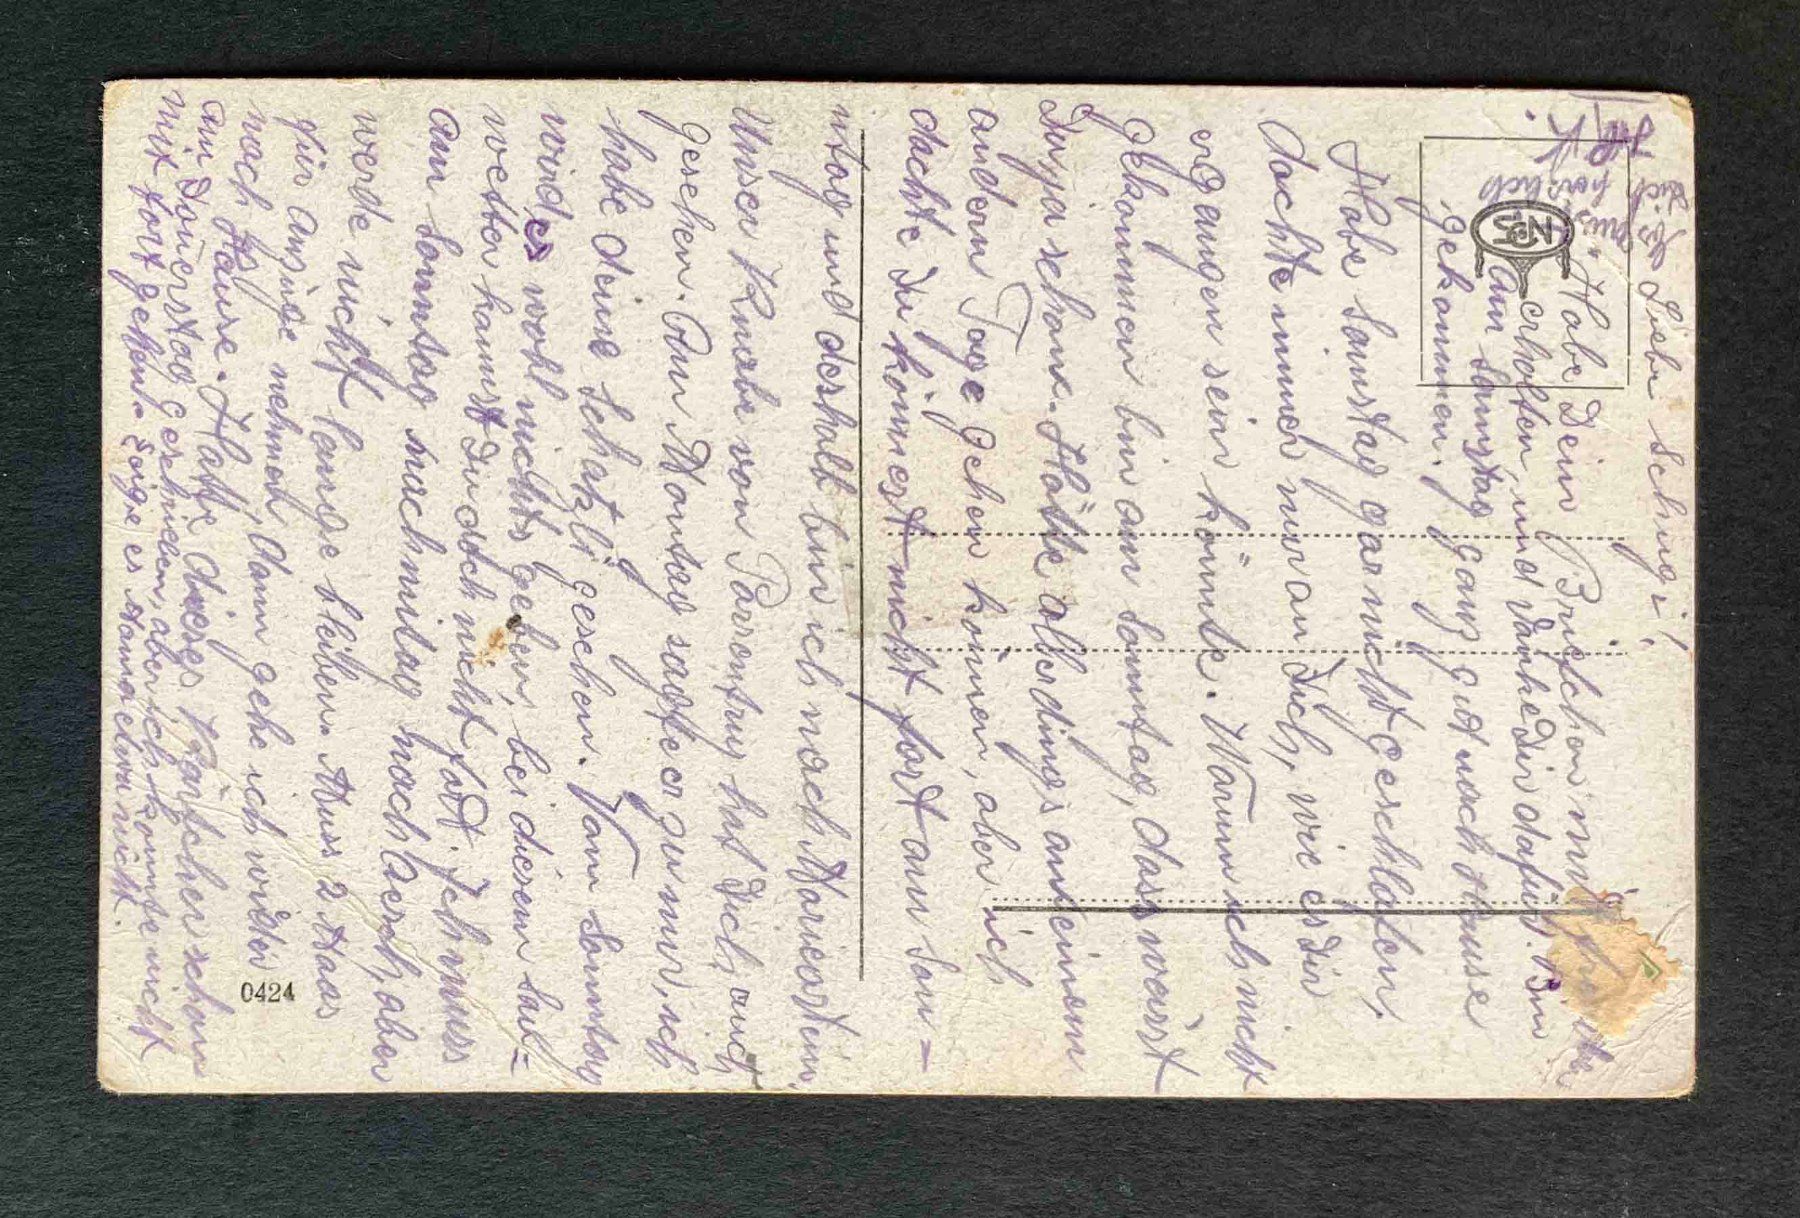 Liebe Schugi!
Habe Dein Briefchen mit
erhalten, und danke Dir dafür. Bin
am Samstag ganz gut nach Hause
gekommen.
Habe Samstag gar nicht geschlafen,
dachte immer nur an Dich, wie es Dir
ergangen sein könnte. Warum ich nicht
gekommen bin am Sonntag, das weisst
Du ja schon. Hätte allerdings an einem
andern Tage gehen können, aber ich
dachte Du kömmest nicht fort am Son=
ntag und deshalb bin ich nach
Unser Knabe von Porrentruy hat Dich auch
gesehen. Am Montag sagte er zu mir, ich
habe deine Schatzli gesehen. Vom Sonntag
wird es wohl nichts geben, bei diesem Sau=
wetter kannst Du doch nicht fort. Ich muss
am Sonntag nachmitag nach Aesch, aber
werde nicht lange bleiben. Muss 2 Maas
für Anzüge nehmen, dann gehe ich wieder
nach Hause. Hatte dieses Kärtchen schon
am Donerstag geschrieben, aber ich konnte nicht
mit fort gehen
Dich
herzlich
NCM
0424